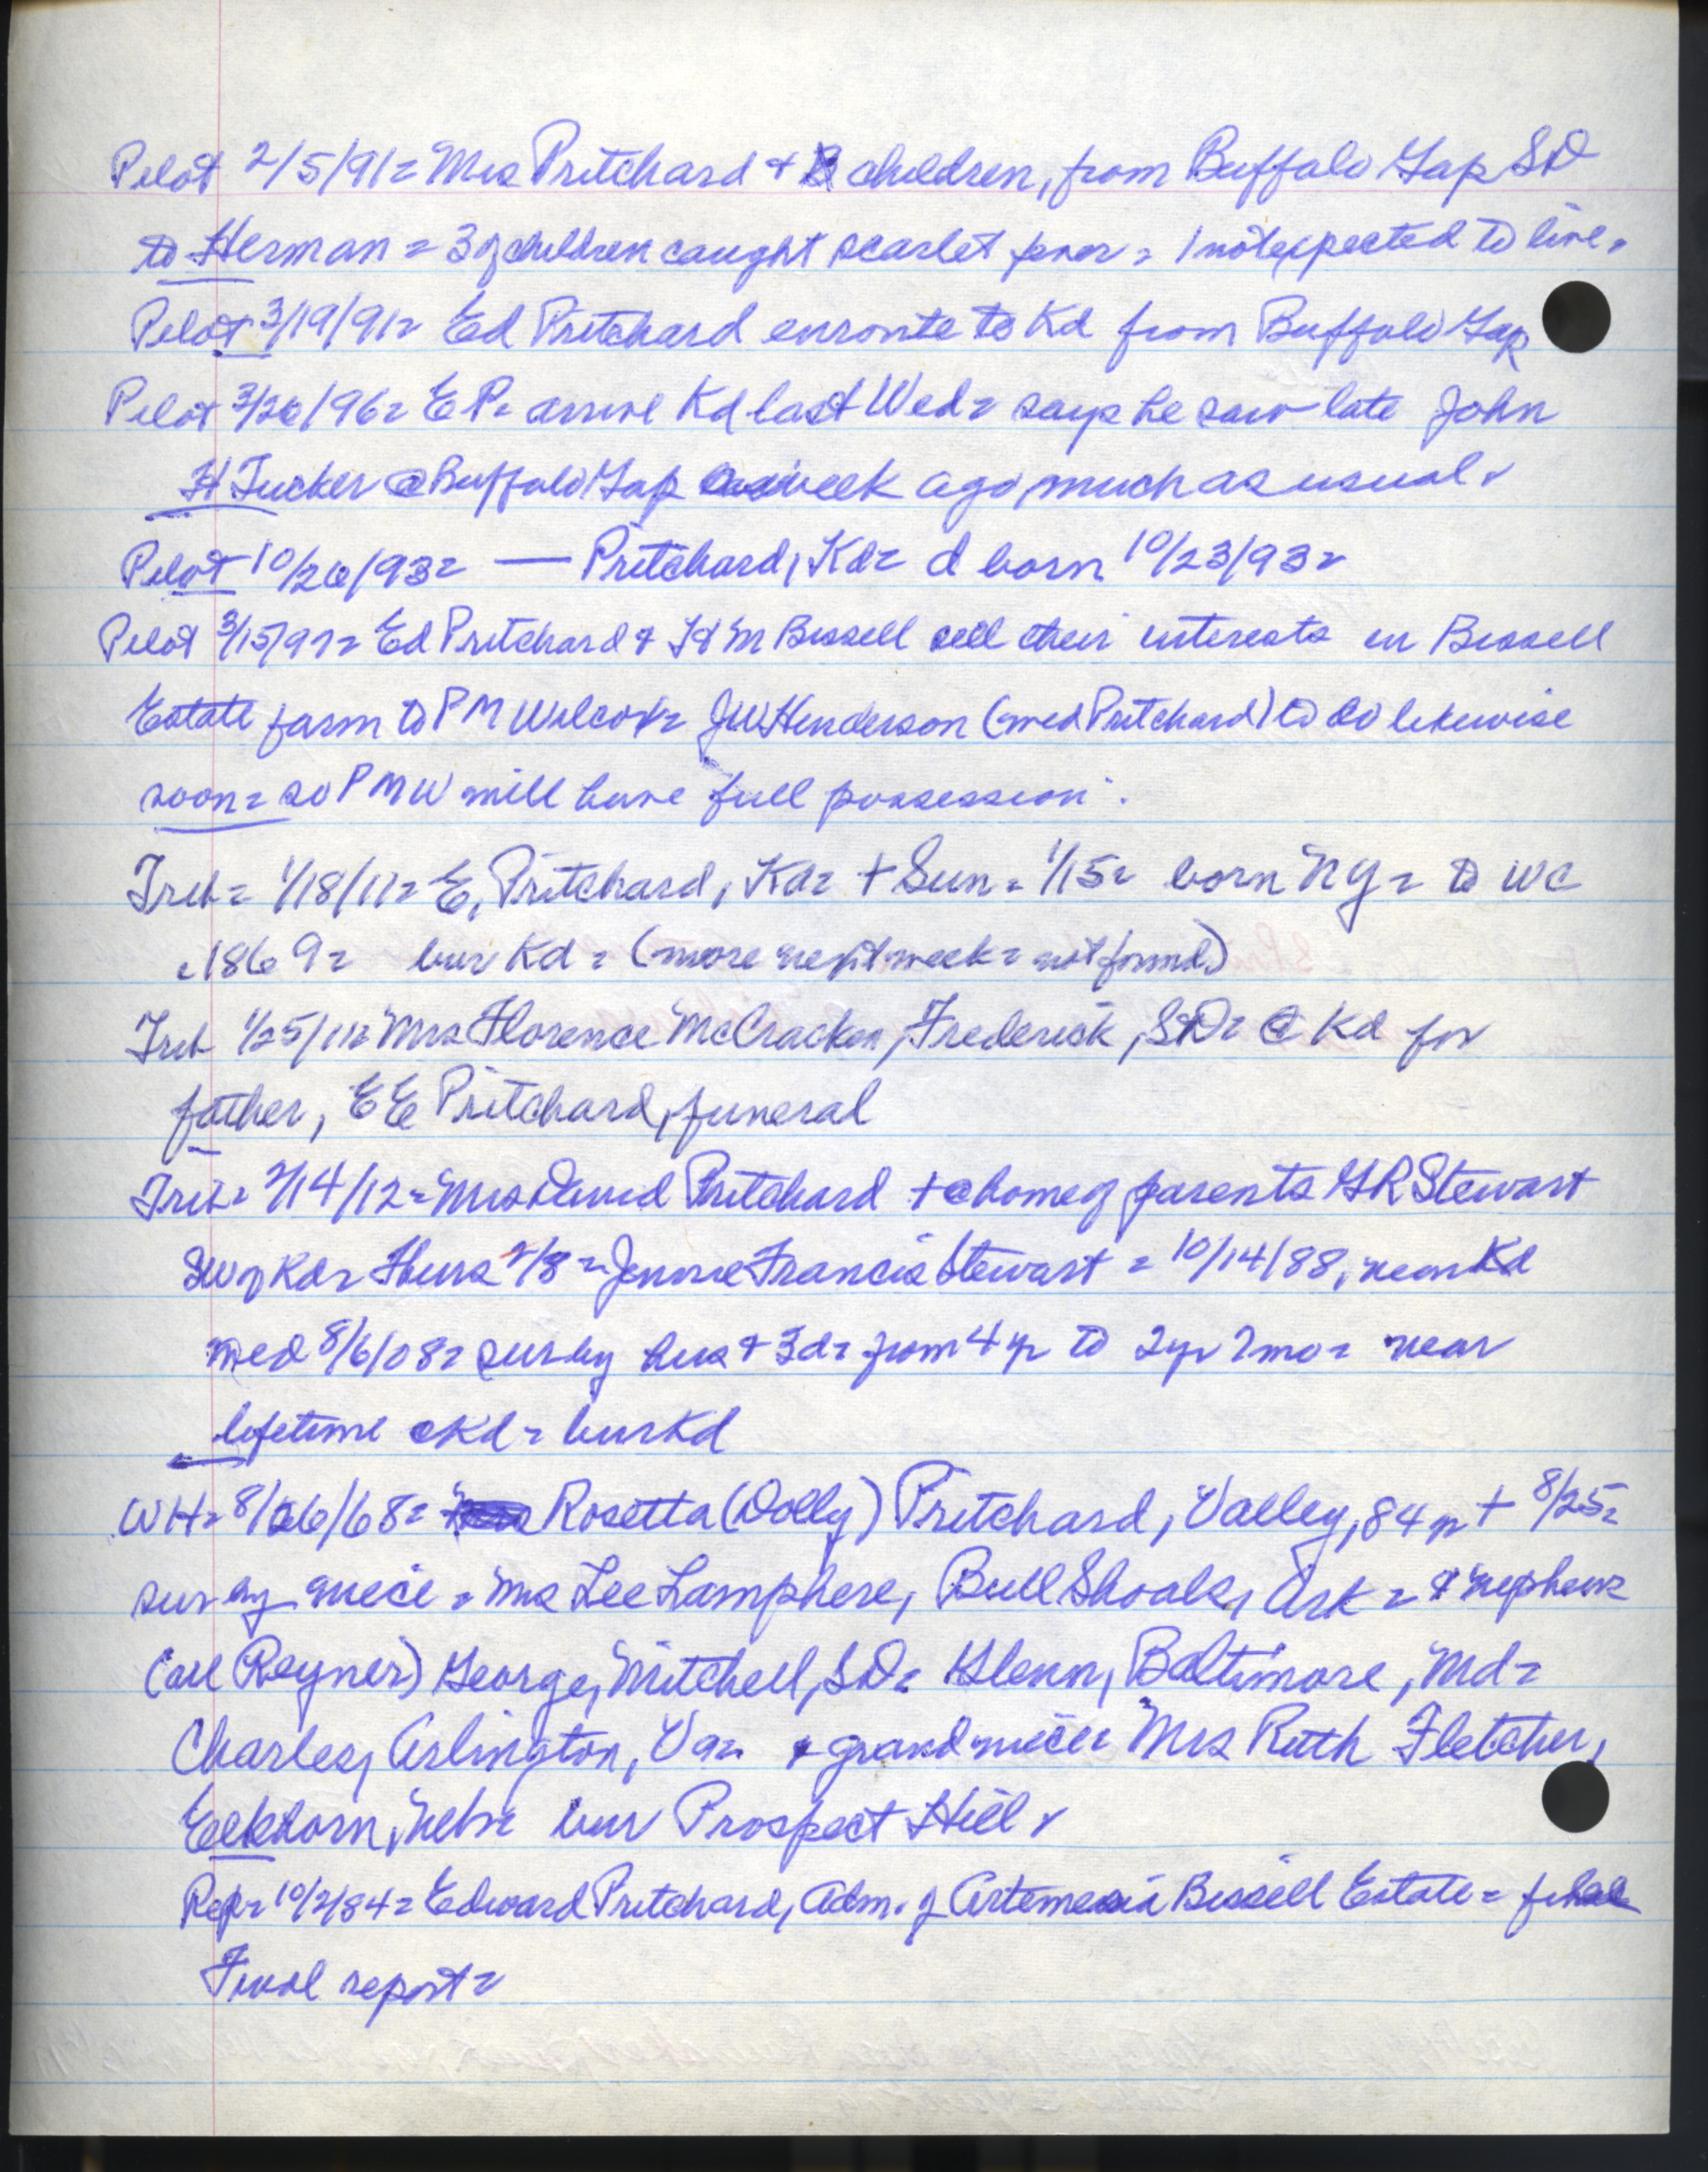 Pilot 2/5/91= Mrs Pritchard + children, from Buffalo Gap SD
to Herman = 3 of children caught scarlet fever = 1 not expected to live.
Pilot 3/19/91= Ed Pritchard enroute to Kd from Buffalo Gap
Pilot 3/26/96= E P= arrive Kd last Wed= says he saw late John
H Tucker @ Buffalo Gap week ago, much as usual=
Pilot 10/26/93= — Pritchard, Kd= d born 10/23/93=
Pilot 3/15/97= Ed Pritchard & H M Bissell sell their interests in Bissell
Estate farm to P M Wilcox= JW Henderson (med Pritchard) to do likewise
soon= so P M W will have full possession.
Trib= 1/18/11= E, Pritchard, Kd= + Sun= 1/15= born NY= to WC
c1869= bur Kd= (more next week= not found)
Trib 1/25/11= Mrs Florence McCracken, Frederick, SD= @ Kd for
father, E E Pritchard, funeral
Trib= 2/14/12= Mrs David Pritchard + @ home of parents GR Stewart
SW of Kd= Thurs 2/8= Francis Stewart = 10/14/88, near Kd
med 8/6/08= sur by hus + 3d= from 4 yr to 2yr 2mo= near
lifetime @Kd= bur Kd
WH= 8/26/68= Rosetta (Dolly) Pritchard, Valley, 84 yr + 8/25=
sur by niece = Mrs Lee Lamphere, Bull Shoals, Ark = & nephews
(all Reyner) George, Mitchell, SD= Glenn, Baltimore, Md=
Charles, Arlington, Va= & grandniece= Mrs Ruth Fletcher,
Elkhorn, Neb= bur Prospect Hill=
Rep= 10/2/84= Edward Pritchard, Adm. of Artemesia Bissell Estate=
Final report=